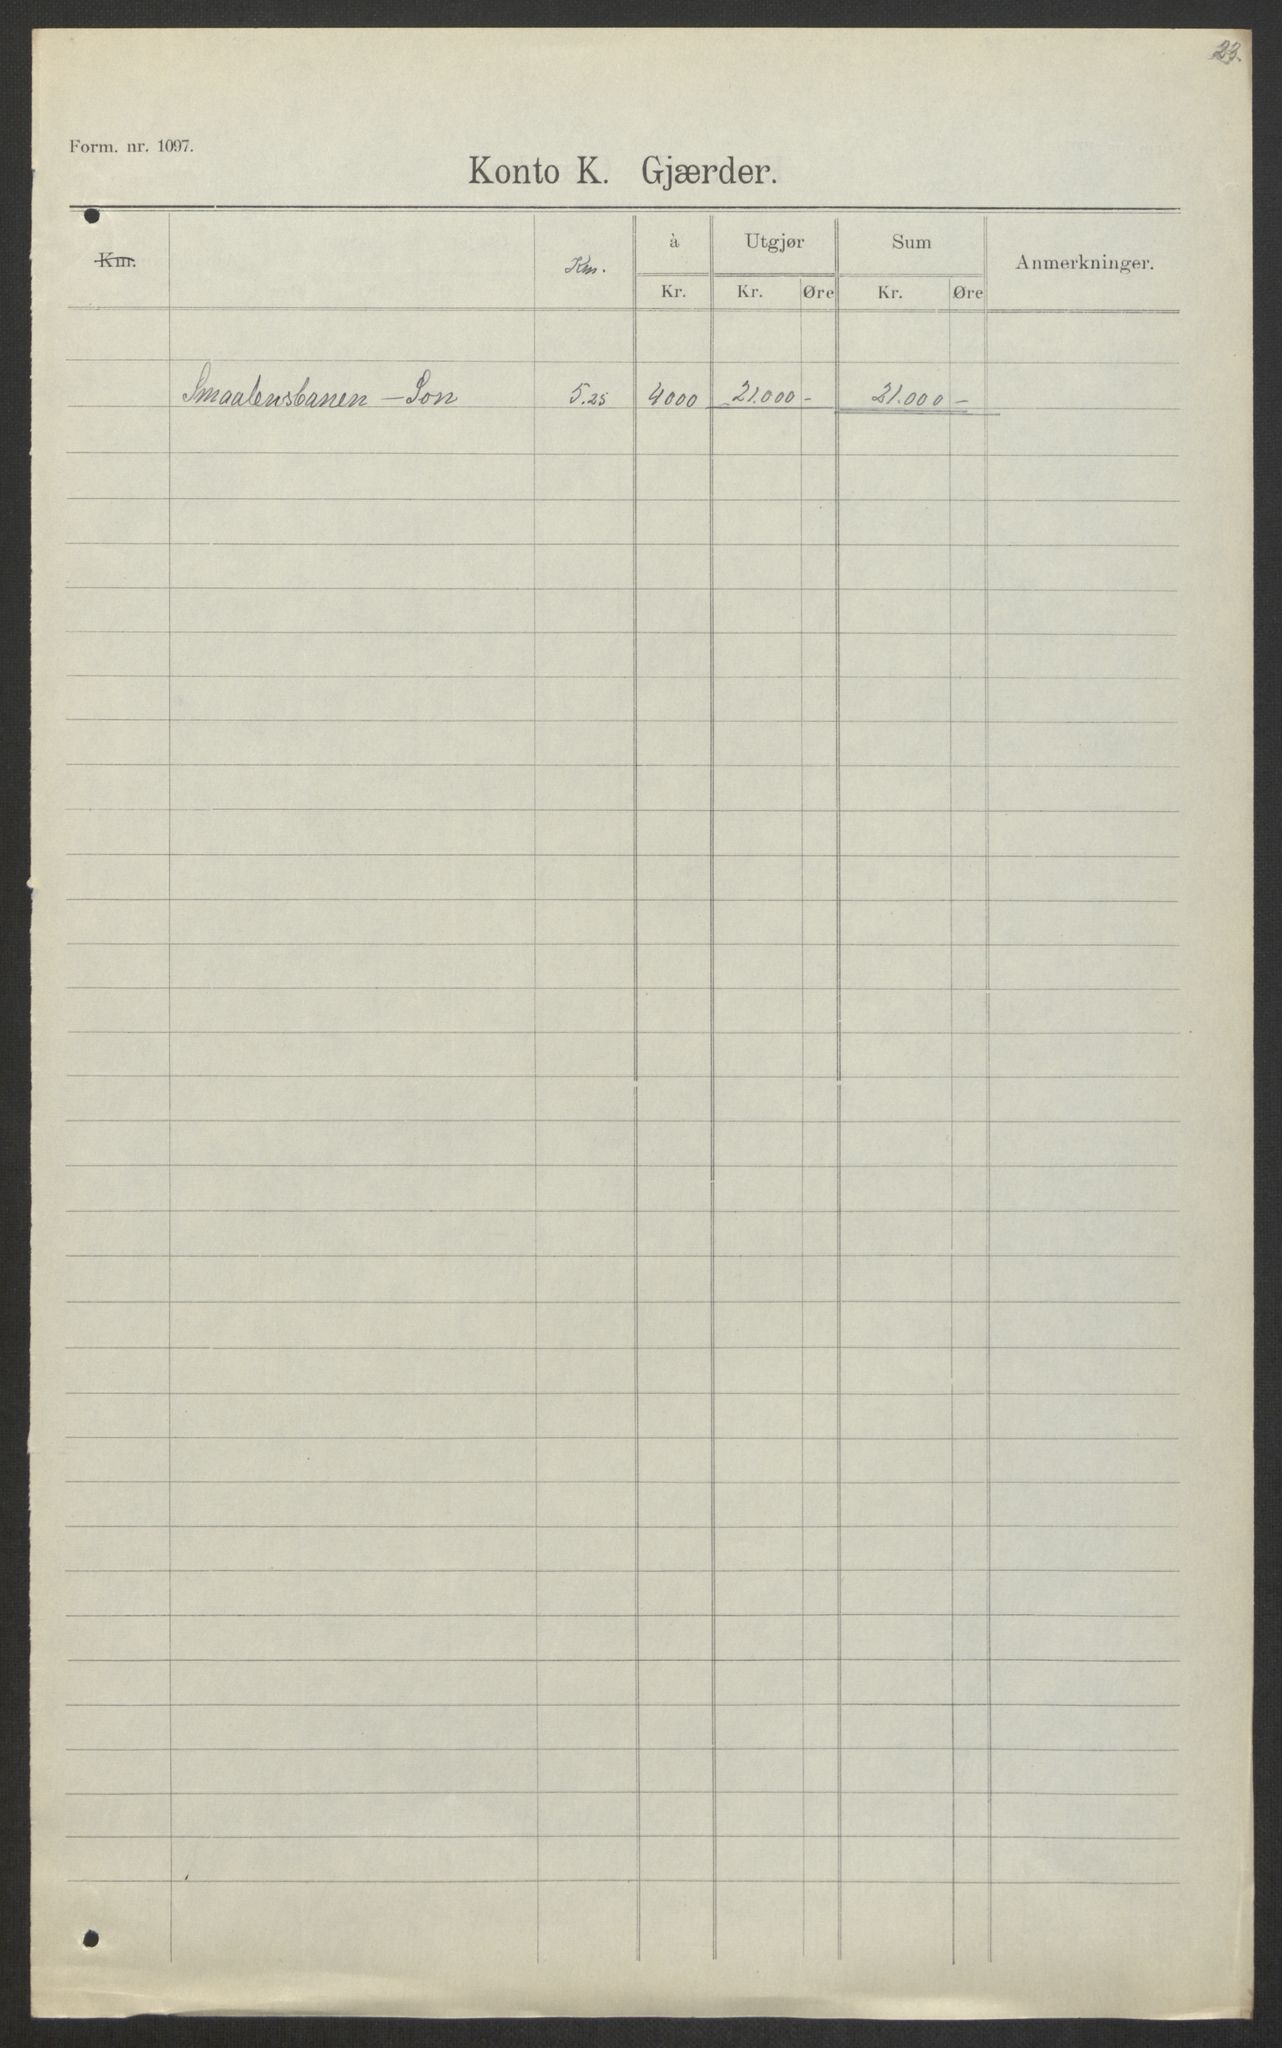 23.
Form. nr. 1097.
Konto K. Gjærder.
Km. Km. à Utgjør Sum Anmerkninger.
Kr. Kr. Øre Kr. Øre
Smaalensbanen — Son 5.25 4000 21.000 - 21.000 -